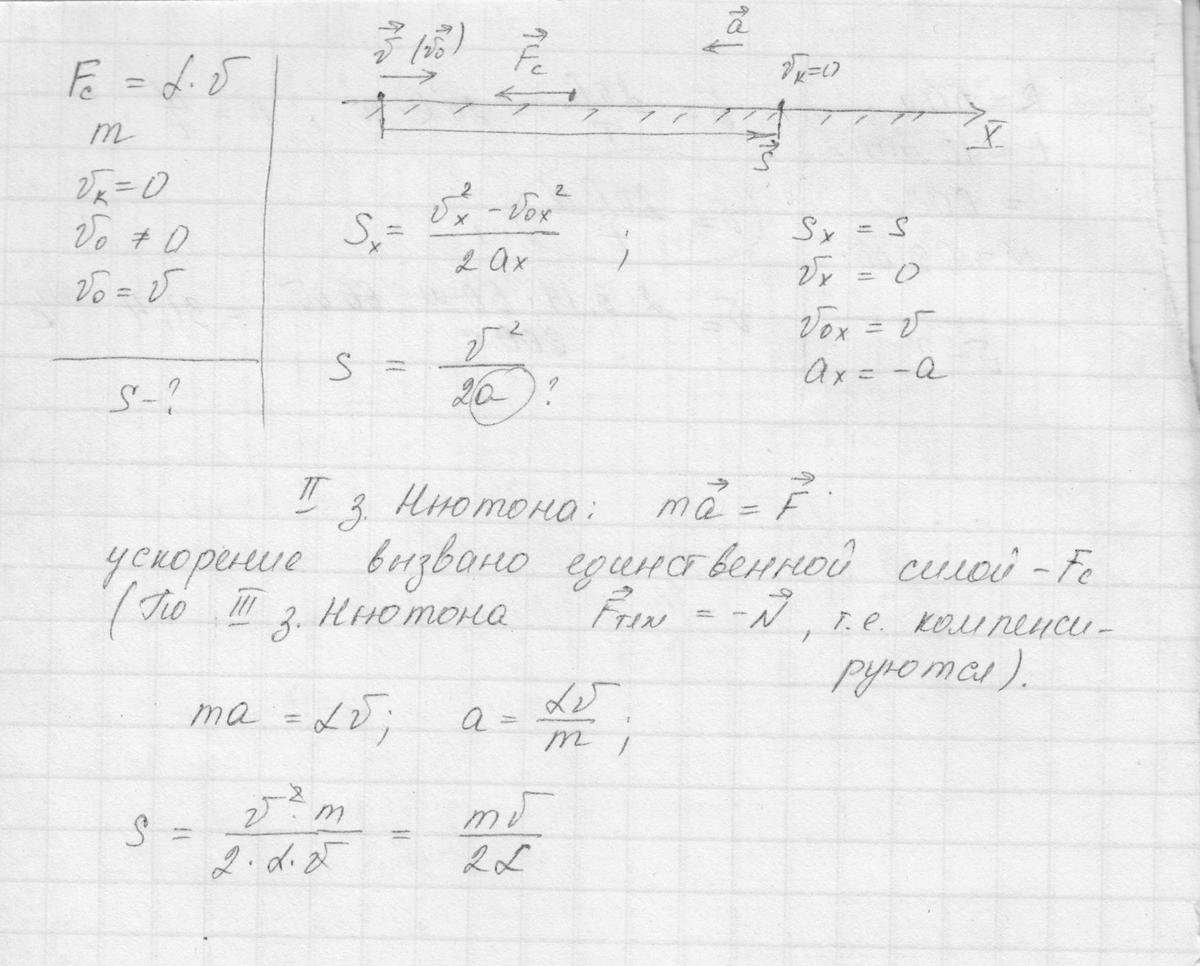 F_c = α·v
m
v_к = 0
v_0 ≠ 0
v_0 = v
S - ?
v⃗ (v⃗_0)
F⃗_c
a⃗
v_к = 0
S⃗
X
S_x = (v_x² - v_0x²) / (2a_x) ;
S = v² / (2a) ?
S_x = S
v_x = 0
v_0x = v
a_x = -a
II з. Ньютона: ma⃗ = F⃗
ускорение вызвано единственной силой - F_c
(По III з. Ньютона F⃗_тяж = -N⃗, т.е. компенси-
руются).
ma = αv; a = αv / m ;
S = (v²·m) / (2·α·v) = mv / (2α)